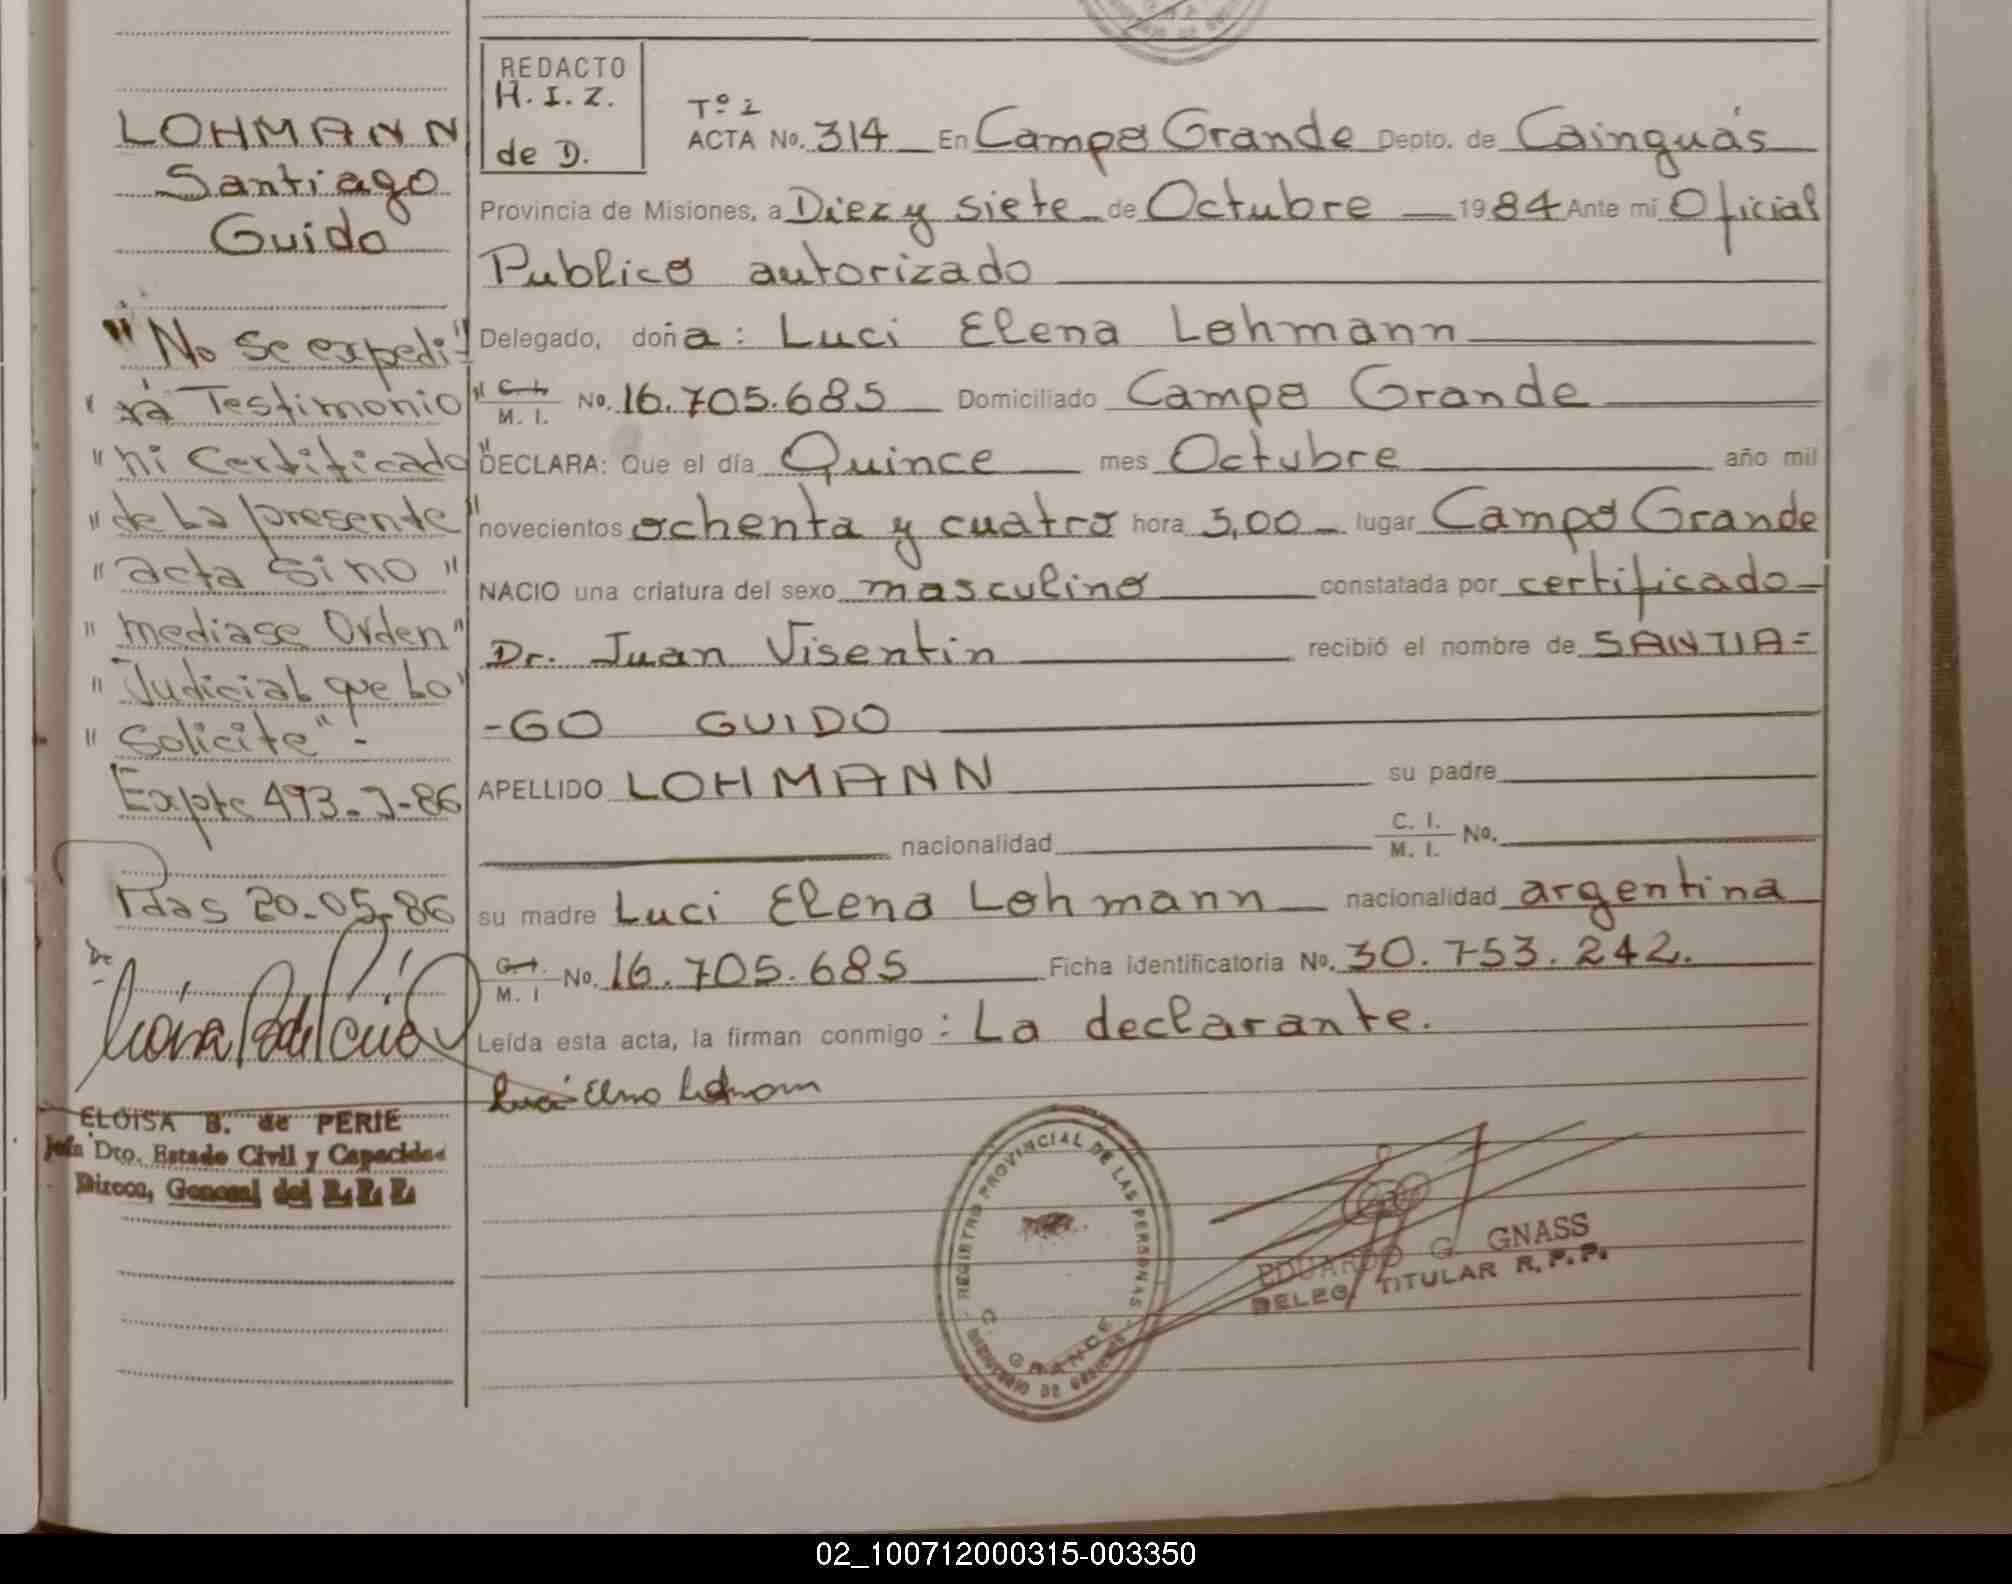 LOHMANN
Santiago
Guido
"No se expedi"
" rá Testimonio "
" ni Certificado "
" de La presente "
" acta sino "
" mediase Orden "
" Judicial que Lo "
" Solicite".-
Expte 493-J-86
Pdas 20-05-86
ELOISA B. de PERIE
Jefa Dto. Estado Civil y Capacidad
Direcc. General del R. P. P.
REDACTO
H. I. Z.
de D.
Tº 2
ACTA No. 314 En Campo Grande Depto. de Cainguás
Provincia de Misiones, a Diez y siete de Octubre 1984 Ante mí Oficial
Publico autorizado
Delegado, doña: Luci Elena Lohmann
C. I.
M. I. No. 16.705.685 Domiciliado Campo Grande
DECLARA: Que el día Quince mes Octubre año mil
novecientos ochenta y cuatro hora 5,00 lugar Campo Grande
NACIO una criatura del sexo masculino constatada por certificado
Dr. Juan Visentin recibió el nombre de SANTIA=
-GO GUIDO
APELLIDO LOHMANN su padre
nacionalidad C. I. M. I. No.
su madre Luci Elena Lohmann nacionalidad argentina
C. I.
M. I No. 16.705.685 Ficha identificatoria No. 30.753.242.
Leída esta acta, la firman conmigo: La declarante.
REGISTRO PROVINCIAL DE LAS PERSONAS
C. GRANDE
MINISTERIO DE GOBIERNO
EDUARDO G. GNASS
DELEG. TITULAR R. P. P.
02_100712000315-003350